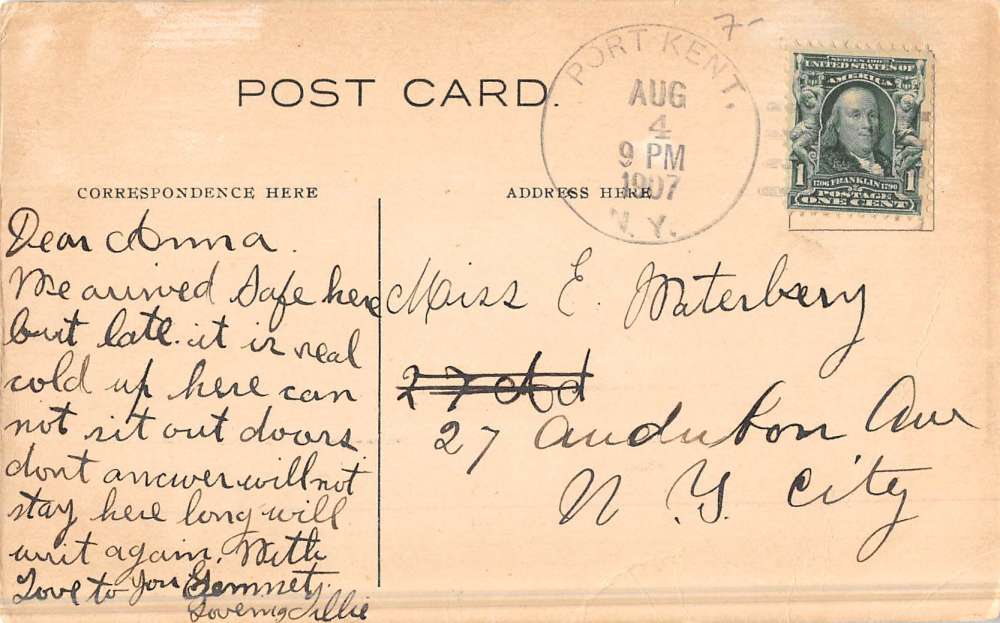 7-
POST CARD.
PORT KENT,
AUG
4
9 PM
1907
N.Y.
SERIES 1902
UNITED STATES OF
AMERICA
1706 FRANKLIN 1790
1 POSTAGE 1
ONE CENT
CORRESPONDENCE HERE
Dear Anna.
We arrived Safe here
but late. it is real
cold up here can
not sit out doors
dont ancwer will not
stay here long will
writ again. With
Love to you
Loveing Tillie
ADDRESS HERE
Miss E. Waterbery
27 Aud
27 Audubon Ave
N. Y. City